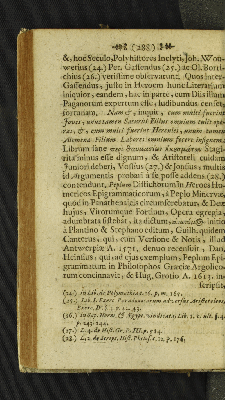 (288)
&, hoc Seculo, Polyhistores Inclyti, Joh. Won-
werius (24.) Pet. Gassendus (25.) ac Ol. Borri-
chius (26.) verissimo observarunt. Quos inter
Gassendus, justo in Heroem hunc Literarium
iniquior, eandem, hac in parte, cum Distillatis
Paganorum expertum esse, ludibundus censet
fortunam. Nam &, inquit, cum multi fuerint
Joves, unus tamen Saturni Filius omnium tulit
&, cum multi fuerint Hercules, unum tamen
Alcmenæ Filium Labores omnium fecere insignem.
Librum sane
rita minus esse dignum, & Aristoteli quidam
Juniori deberi, Vossius (27.) & Jonsius, multis
id Argumentis probari a se posse addens (28.)
contendunt. Peplum Distichorum in Heroas Ho-
mericos Epigrammaticorum, a Peplo Minervæ,
quod in Panathenaicis circumferebatur, & Deæ
hujus, Virorumque Fortium, Opera egregia,
adumbrata sistebat, ita dictum
à Plantino & Stephano editum, Guilh. quidem
Canterus, qui, cum Versione & Notis, illud
Antwerpiæ A. 1571. denuo recensuit, Dan.
Heinsius, qui, ad ejus exemplum, Peplum Epi-
grammatum in Philosophos Græciæ Argolico-
rum concinnavit, & Hug. Grotio A. 1613. in-
scripsit
(24.) in Lib. de Polymathia c. 16. p. m. 165.
(25.) Lib. I. Exerc. Paradoxicarum adversus Aristoteleos,
(27.) L. 4. de Hist. Gr. P. III. p. 514.
(28.) L. 1. de Script. Hist. Philos. c. 12. p. 176.